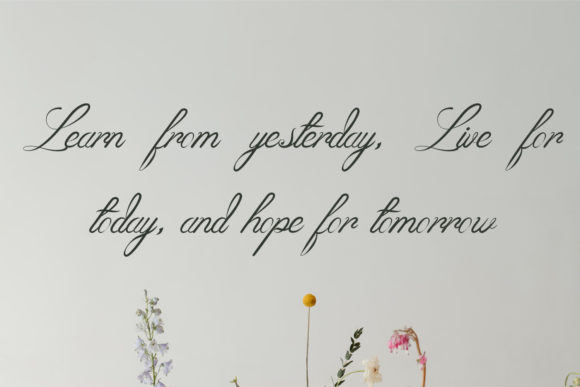 Learn from yesterday, Live for
today, and hope for tomorrow